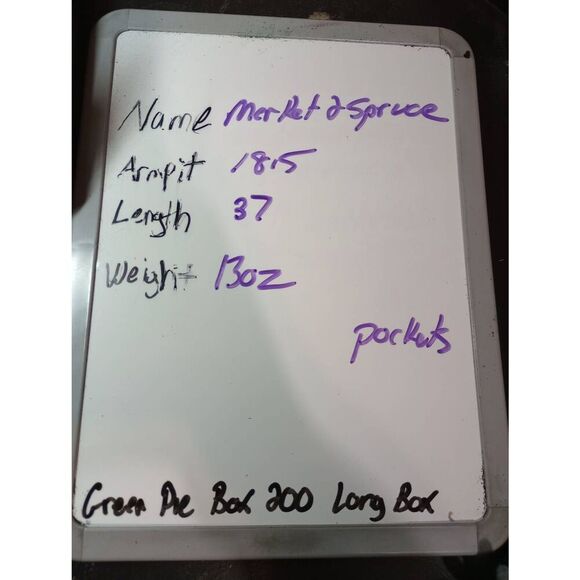 Name Market & Spruce
Armpit 18.5
Length 37
Weight 13oz
pockets
Green Pie Box 200 Long Box